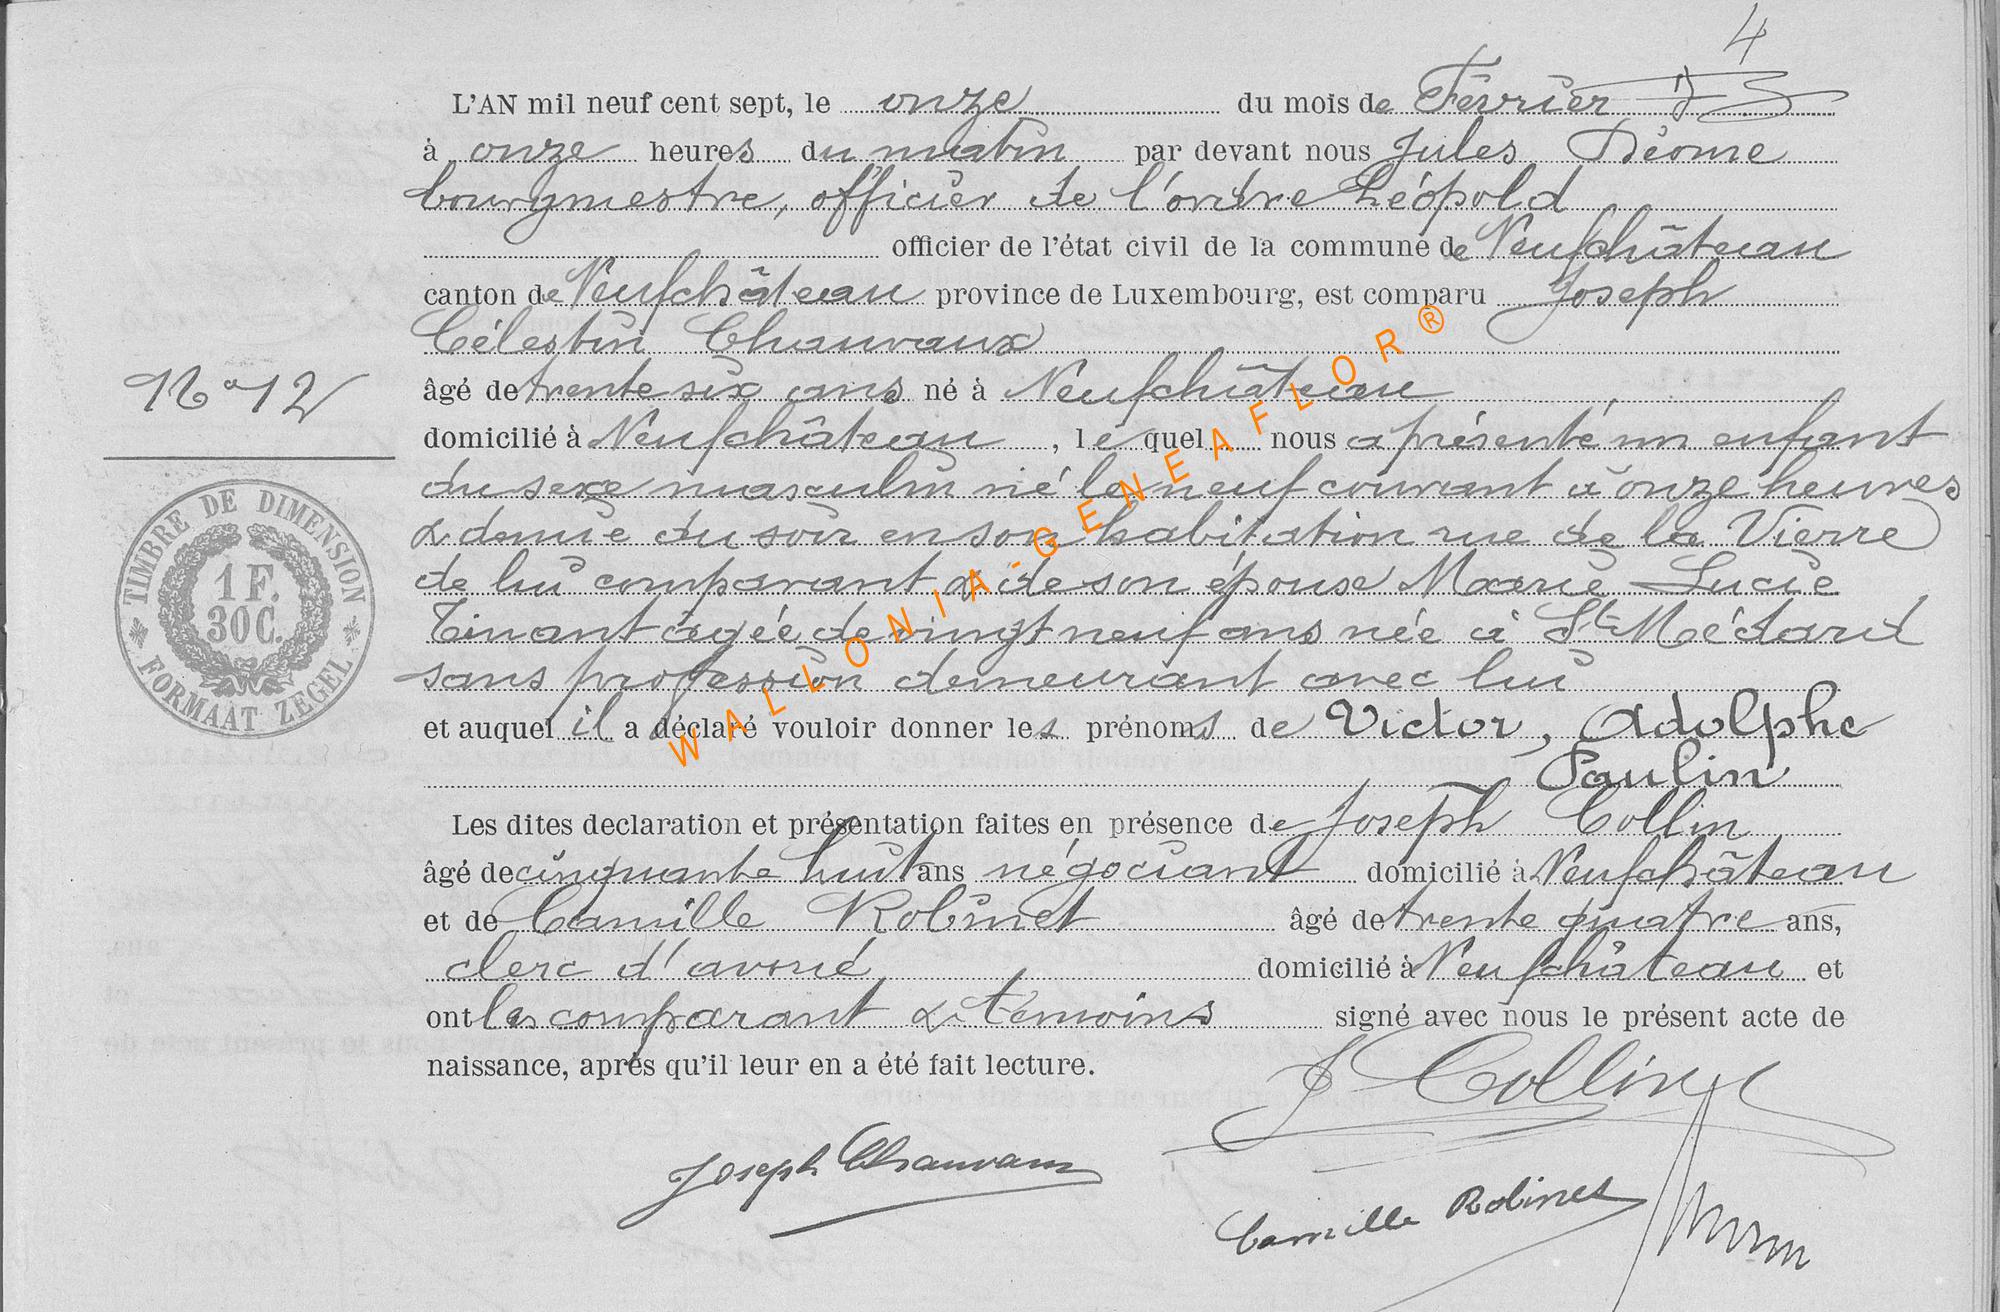 4
L'AN mil neuf cent sept, le onze du mois de Février
à onze heures du matin par devant nous Jules Déome
bourgmestre, officier de l'ordre Léopold
officier de l'état civil de la commune de Neufchâteau
canton de Neufchâteau province de Luxembourg, est comparu Joseph
Célestin Chauvaux
N° 12
âgé de trente six ans né à Neufchâteau
domicilié à Neufchâteau, lequel nous a présenté un enfant
du sexe masculin né le neuf courant à onze heures
& demie du soir en son habitation rue de la Vierre
de lui comparant & de son épouse Marie Lucie
Tinant âgée de vingt neuf ans née à St Médard
sans profession demeurant avec lui
et auquel il a déclaré vouloir donner les prénoms de Victor, Adolphe
Paulin
Les dites declaration et présentation faites en présence de Joseph Collin
âgé de cinquante huit ans négociant domicilié à Neufchâteau
et de Camille Robinet âgé de trente quatre ans,
clerc d'avoué domicilié à Neufchâteau et
ont les comparant & témoins signé avec nous le présent acte de
naissance, après qu'il leur en a été fait lecture.
J Collin
Joseph Chauvaux
Camille Robinet
TIMBRE DE DIMENSION
1 F.
30 C.
FORMAAT ZEGEL
WALLONIA-GENEAFLOR®